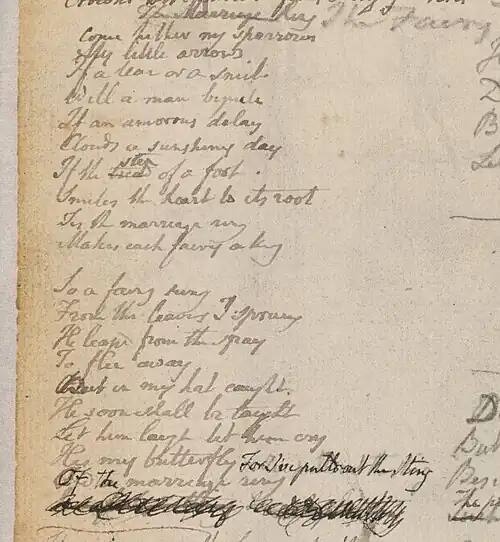 The Marriage Ring The Fairy
Come hither my sparrows
My little arrows
If a tear or a smile
Will a man beguile
If an amorous delay
Clouds a sunshiny day
If the tread step of a foot
Smites the heart to its root
Tis the marriage ring
Makes each fairy a king
So a fairy sung
From the leaves I sprung
He leapd from the spray
To flee away
But in my hat caught
He soon shall be taught
Let him laugh let him cry
Hes my butterfly For I've pulld out the Sting
Of the marriage ring
But